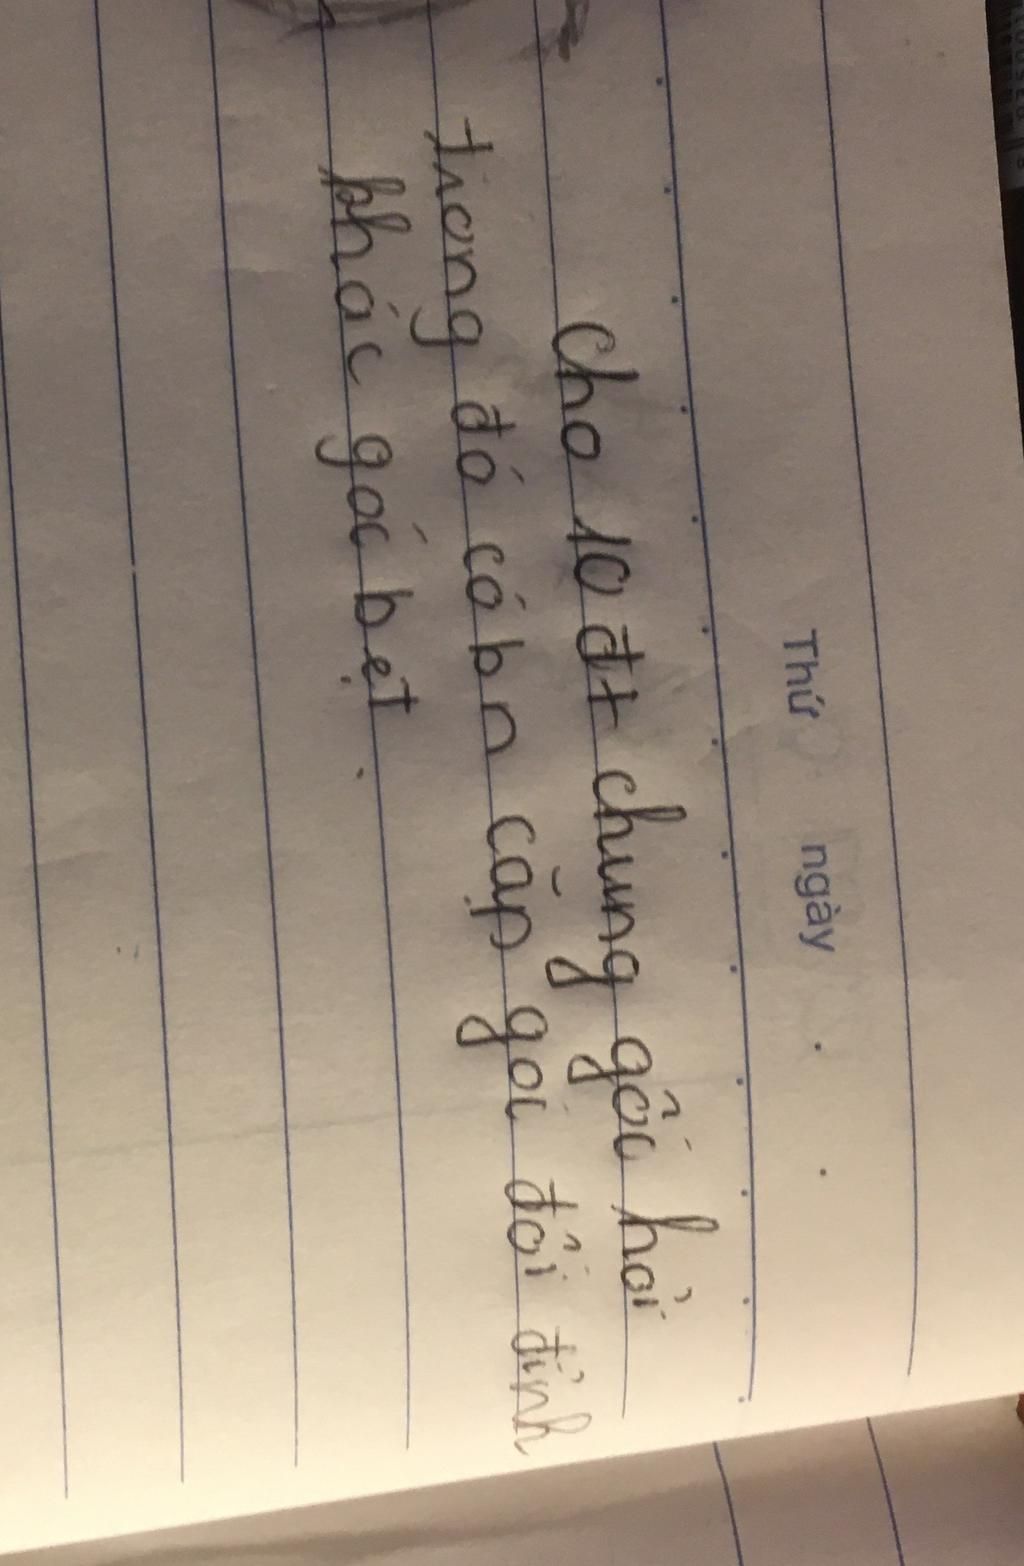 Thứ ngày
Cho 10 đt chung gốc hỏi
trong đó có bn cặp goc đối đỉnh
khác goć bẹt.